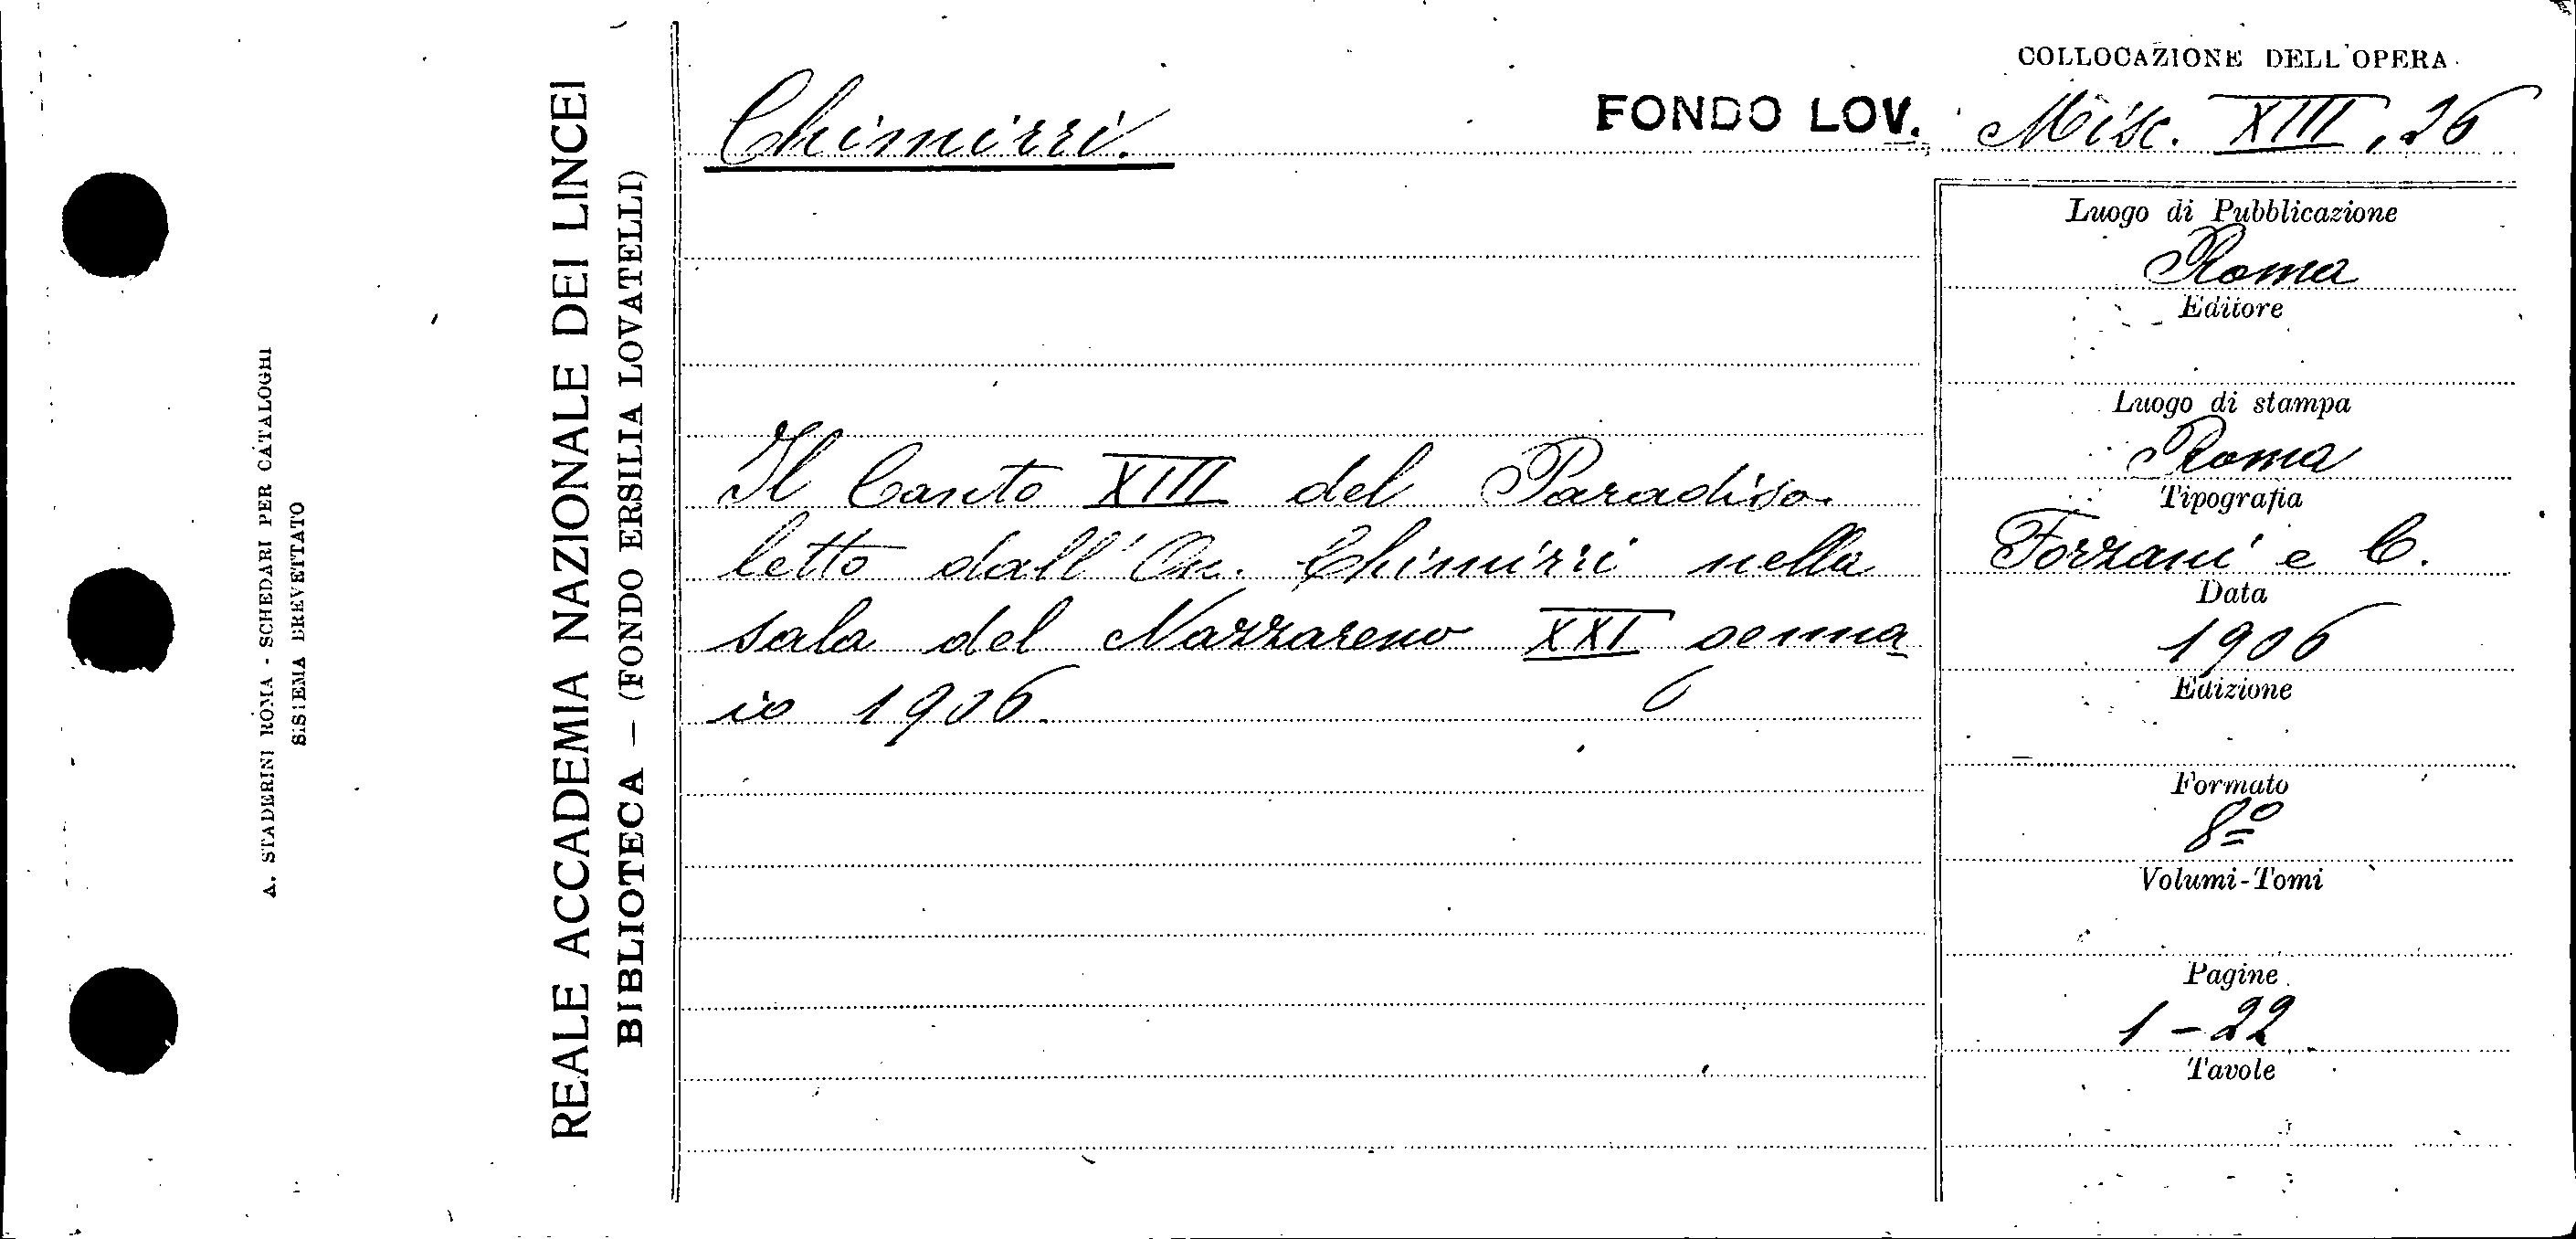 A. STADERINI ROMA - SCHEDARI PER CATALOGHI
SISTEMA BREVETTATO
REALE ACCADEMIA NAZIONALE DEI LINCEI
BIBLIOTECA — (FONDO ERSILIA LOVATELLI)
Chimirri.
FONDO LOV.
COLLOCAZIONE DELL'OPERA
Misc. XIII, 26
Il Canto XIII del Paradiso
letto dall'On. Chimirri nella
sala del Nazzareno XXI genna
io 1906.
Luogo di Pubblicazione
Roma
Editore
Luogo di stampa
Roma
Tipografia
Forzani e C.
Data
1906
Edizione
Formato
8º
Volumi-Tomi
Pagine
1-22
Tavole